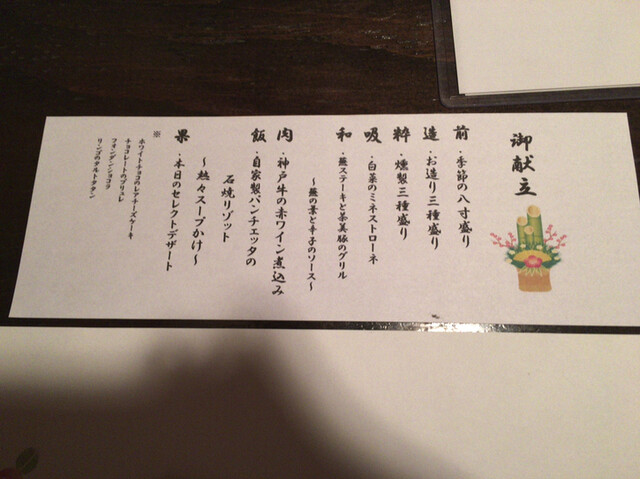 御献立
前・季節の八寸盛り
造・お造り三種盛り
粋・燻製三種盛り
吸・白菜のミネストローネ
和・蕪ステーキと茶美豚のグリル
～蕪の葉と辛子のソース～
肉・神戸牛の赤ワイン煮込み
飯・自家製パンチェッタの
石焼リゾット
～熱々スープかけ～
果・本日のセレクトデザート
※
ホワイトチョコのレアチーズケーキ
チョコレートのブリュレ
フォンダンショコラ
リンゴのタルトタタン